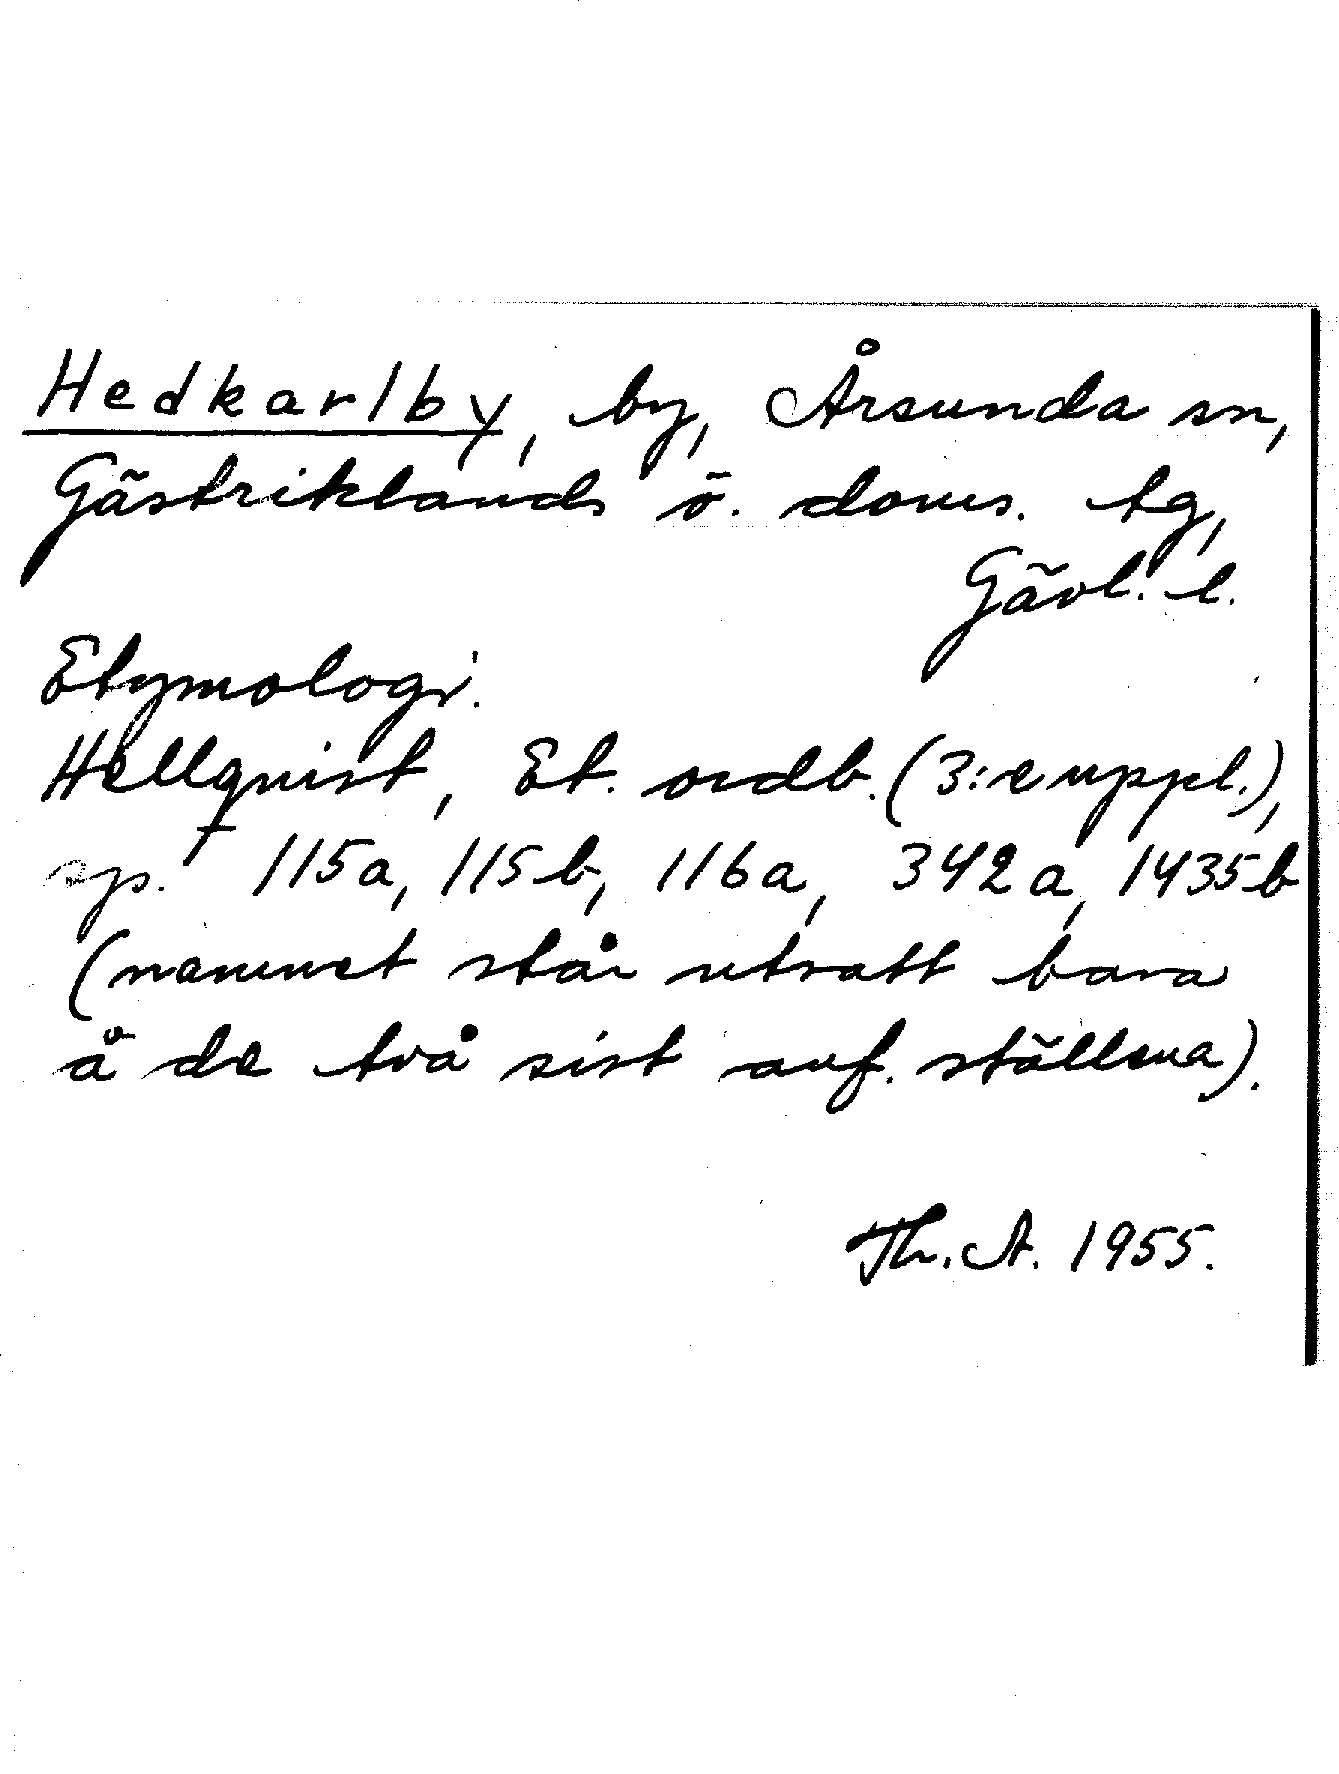 Hedkarlby, by, Årsunda sn,
Gästriklands ö. doms. tg,
Gävl. l.
Etymologi.
Hellquist, Et. ordb. (3:e uppl.),
sp. 115a, 115b, 116a, 342a, 1435b
(namnet står utsatt bara
å de två sist anf. ställena).
Th. A. 1955.